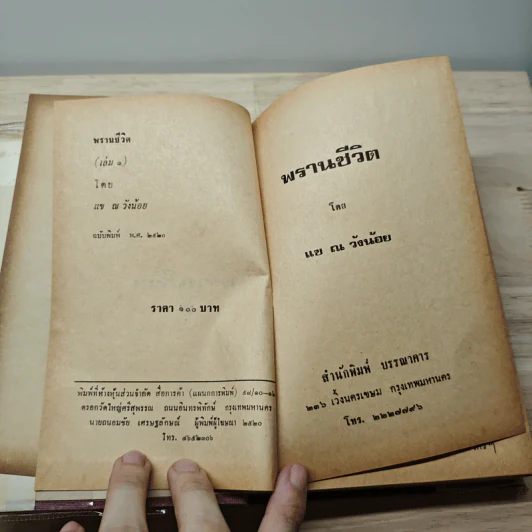 พรานชีวิต
(เล่ม ๑)
โดย
แข ณ วังน้อย
ฉบับพิมพ์ พ.ศ. ๒๕๒๐
ราคา ๑๐๐ บาท
พิมพ์ที่ห้างหุ้นส่วนจำกัด สื่อการค้า (แผนกการพิมพ์)
ตรอกวัดใหญ่ศรีสุพรรณ ถนนอินทรพิทักษ์ กรุงเทพมหานคร
นายถนอมชัย เศรษฐลักษณ์ ผู้พิมพ์ผู้โฆษณา ๒๕๒๐
โทร. �४๖๕๒๓๐๖
พรานชีวิต
โดย
แข ณ วังน้อย
สำนักพิมพ์ บรรณาคาร
๒๓๖ เวิ้งนครเขษม กรุงเทพมหานคร
โทร. ๒๒๒๗๗๙๖